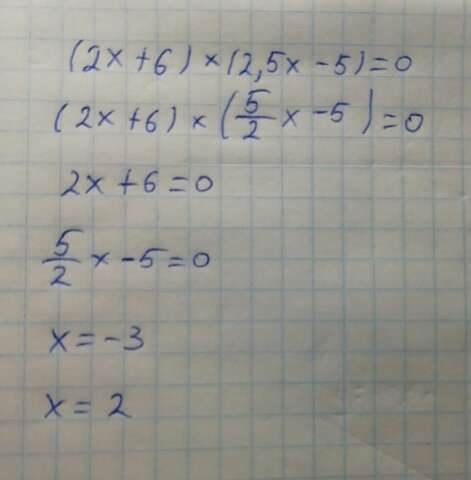 (2x+6)×(2,5x-5)=0
(2x+6)×(5/2x-5)=0
2x+6=0
5/2x-5=0
x=-3
x=2